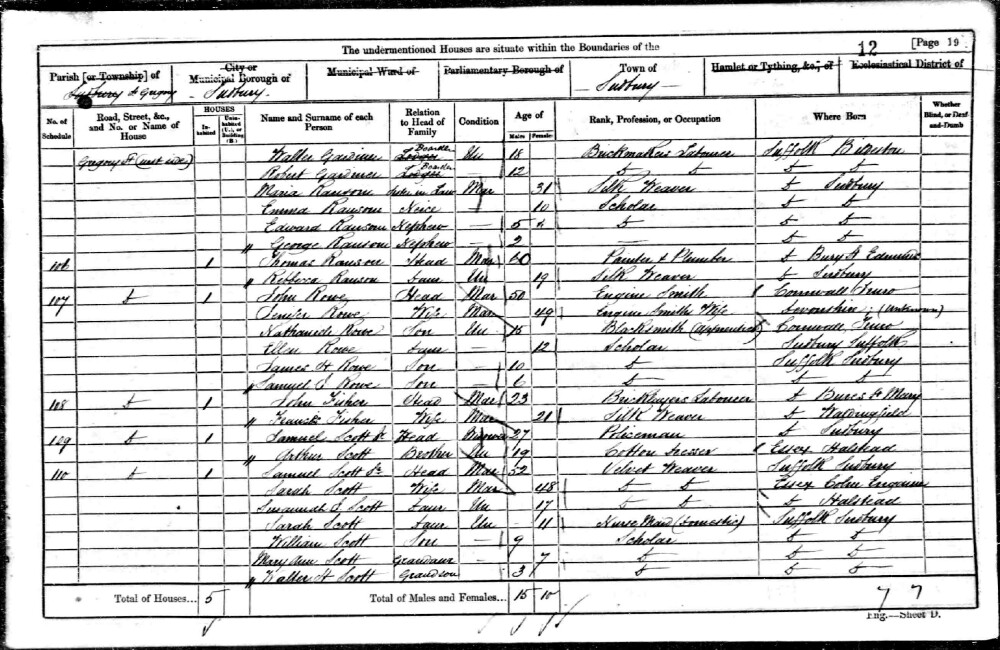 12 [Page 19
The undermentioned Houses are situate within the Boundaries of the
Parish [or Township] of City or Municipal Borough of Municipal Ward of Parliamentary Borough of Town of Hamlet or Tything, &c., of Ecclesiastical District of
Sudbury St Gregory Sudbury Sudbury
No. of Schedule Road, Street, &c., and No. or Name of House HOUSES Inhabited Uninhabited (U.), or Building (B.) Name and Surname of each Person Relation to Head of Family Condition Age of Males Females Rank, Profession, or Occupation Where Born Whether Blind, or Deaf-and-Dumb
Gregory St (west side) Walter Gardiner Lodger Boarder Un 18 Brickmakers Labourer Suffolk
Robert Gardiner Lodger Boarder — 12 Do Do Do Do
Maria Ransom Sister in Law Mar 31 Silk Weaver Do Sudbury
Emma Ransom Neice — 10 Scholar Do Do
Edward Ransom Nephew — 5 Do Do Do
" George Ransom Nephew — 2 — Do Do
106 1 Thomas Ransom Head Mar 60 Painter & Plumber Do Bury St Edmunds
" Rebbeca Ransom Daur Un 19 Silk Weaver Do Sudbury
107 Do 1 John Rowe Head Mar 50 Engine Smith Cornwall Truro
Rowe Wife Mar 49 Engine Smiths Wife Devonshire (Unknown)
Rowe Son Un 15 Blacksmith (apprentice) Cornwall Truro
Ellen Rowe Daur 12 Scholar Sudbury Suffolk
James H Rowe Son — 10 Do Suffolk Sudbury
" Samuel J Rowe Son — 6 Do Do
108 Do 1 John Fisher Head Mar 23 Bricklayers Labourer Do Bures St Mary
" Fisher Wife Mar 21 Silk Weaver Do Waldringfield
129 Do 1 Samuel Scott Jr Head Widower 27 Policeman Do Sudbury
" Arthur Scott Brother Un 19 Cotton Dresser Essex Halstead
110 Do 1 Samuel Scott Sr Head Mar 52 Velvet Weaver Suffolk Sudbury
Sarah Scott Wife Mar 48 Do Do Essex Colne Engaine
Susannah S Scott Daur Un 17 Do Do Do Halstead
Sarah Scott Daur Un 11 Nurse Maid (Domestic) Suffolk Sudbury
William Scott Son — 9 Scholar Do Do
Mary Ann Scott Grandaur — 7 Do Do Do
" Walter H Scott Grandson 3 Do Do Do
Total of Houses... 5 Total of Males and Females... 15 10 7 7
Eng.—Sheet D.